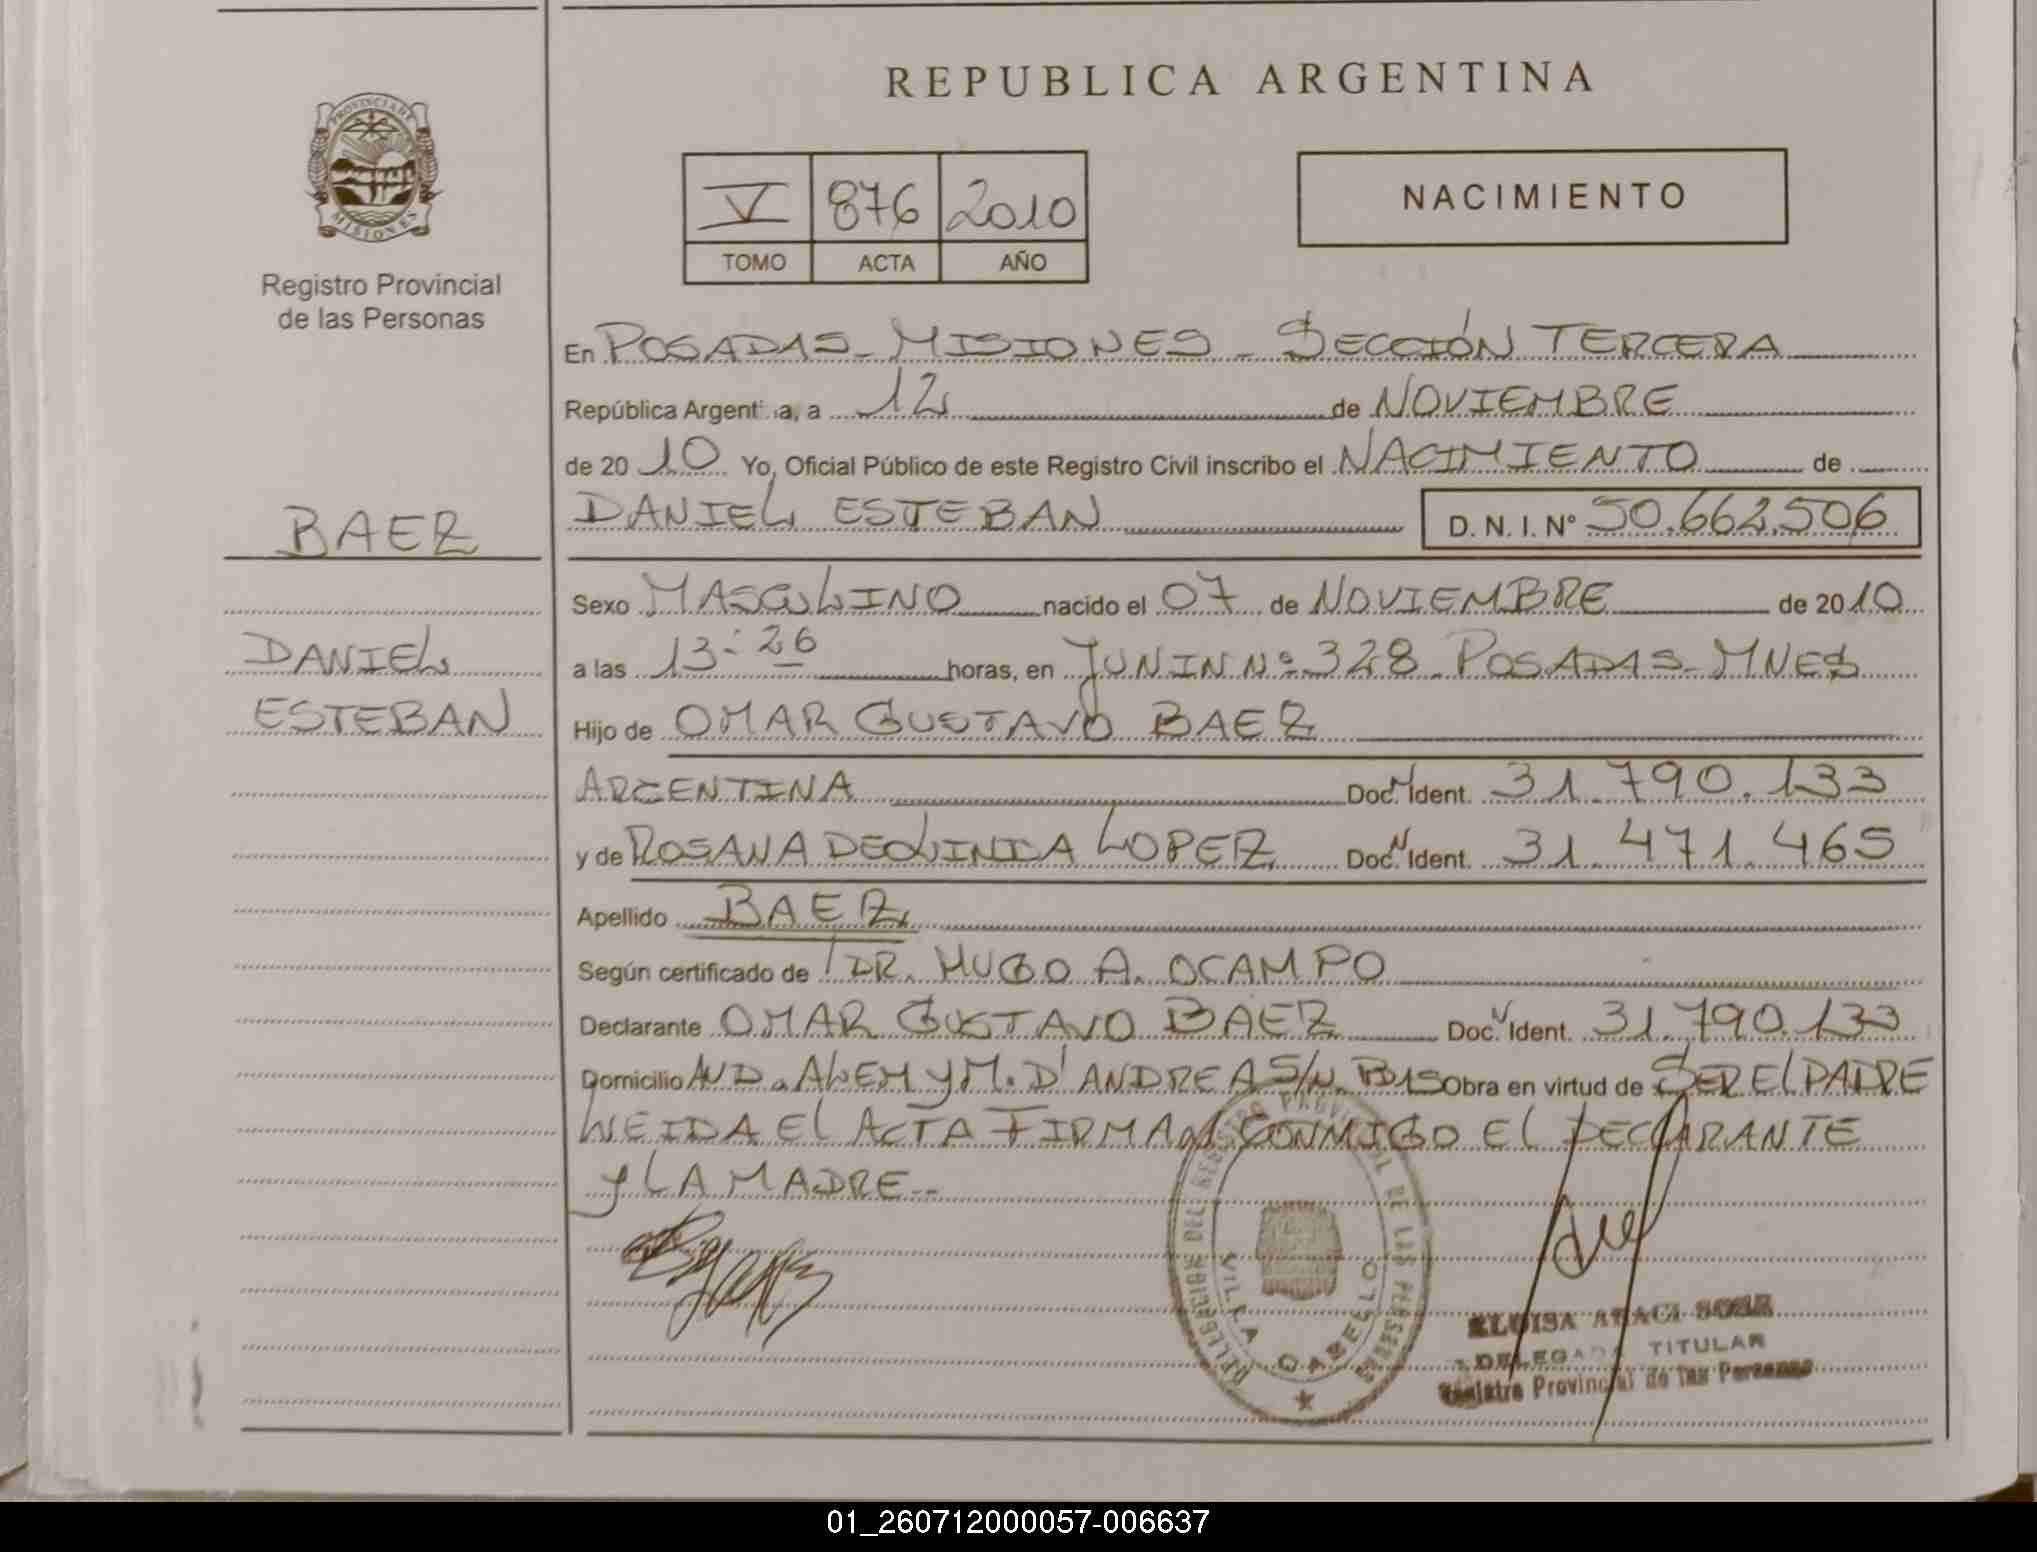 REPUBLICA ARGENTINA
PROVINCIA DE
MISIONES
Registro Provincial
de las Personas
V 876 2010
TOMO ACTA AÑO
NACIMIENTO
En POSADAS - MISIONES - SECCIÓN TERCERA
República Argentina, a 12 de NOVIEMBRE
de 2010 Yo, Oficial Público de este Registro Civil inscribo el NACIMIENTO de
BAEZ
DANIEL ESTEBAN D. N. I. Nº 50.662.506
Sexo MASCULINO nacido el 07 de NOVIEMBRE de 2010
DANIEL
a las 13:26 horas, en JUNIN Nº 328 - POSADAS - MNES
ESTEBAN
Hijo de OMAR GUSTAVO BAEZ
ARGENTINA Doc. Ident. 31.790.133
y de ROSANA LOPEZ Doc. Ident. 31.471.465
Apellido BAEZ
Según certificado de DR. HUGO A. OCAMPO
Declarante OMAR GUSTAVO BAEZ Doc. Ident. 31.790.133
Domicilio AVD. ALEM Y M. D'ANDREA S/N. Obra en virtud de SER EL PADRE
LEIDA EL ACTA FIRMAN CONMIGO EL DECLARANTE
Y LA MADRE.-
DELEGACION DEL REGISTRO PROVINCIAL DE LAS PERSONAS
VILLA CABELLO
ELOISA ARACI
DELEGADA TITULAR
Registro Provincial de las Personas
01_260712000057-006637